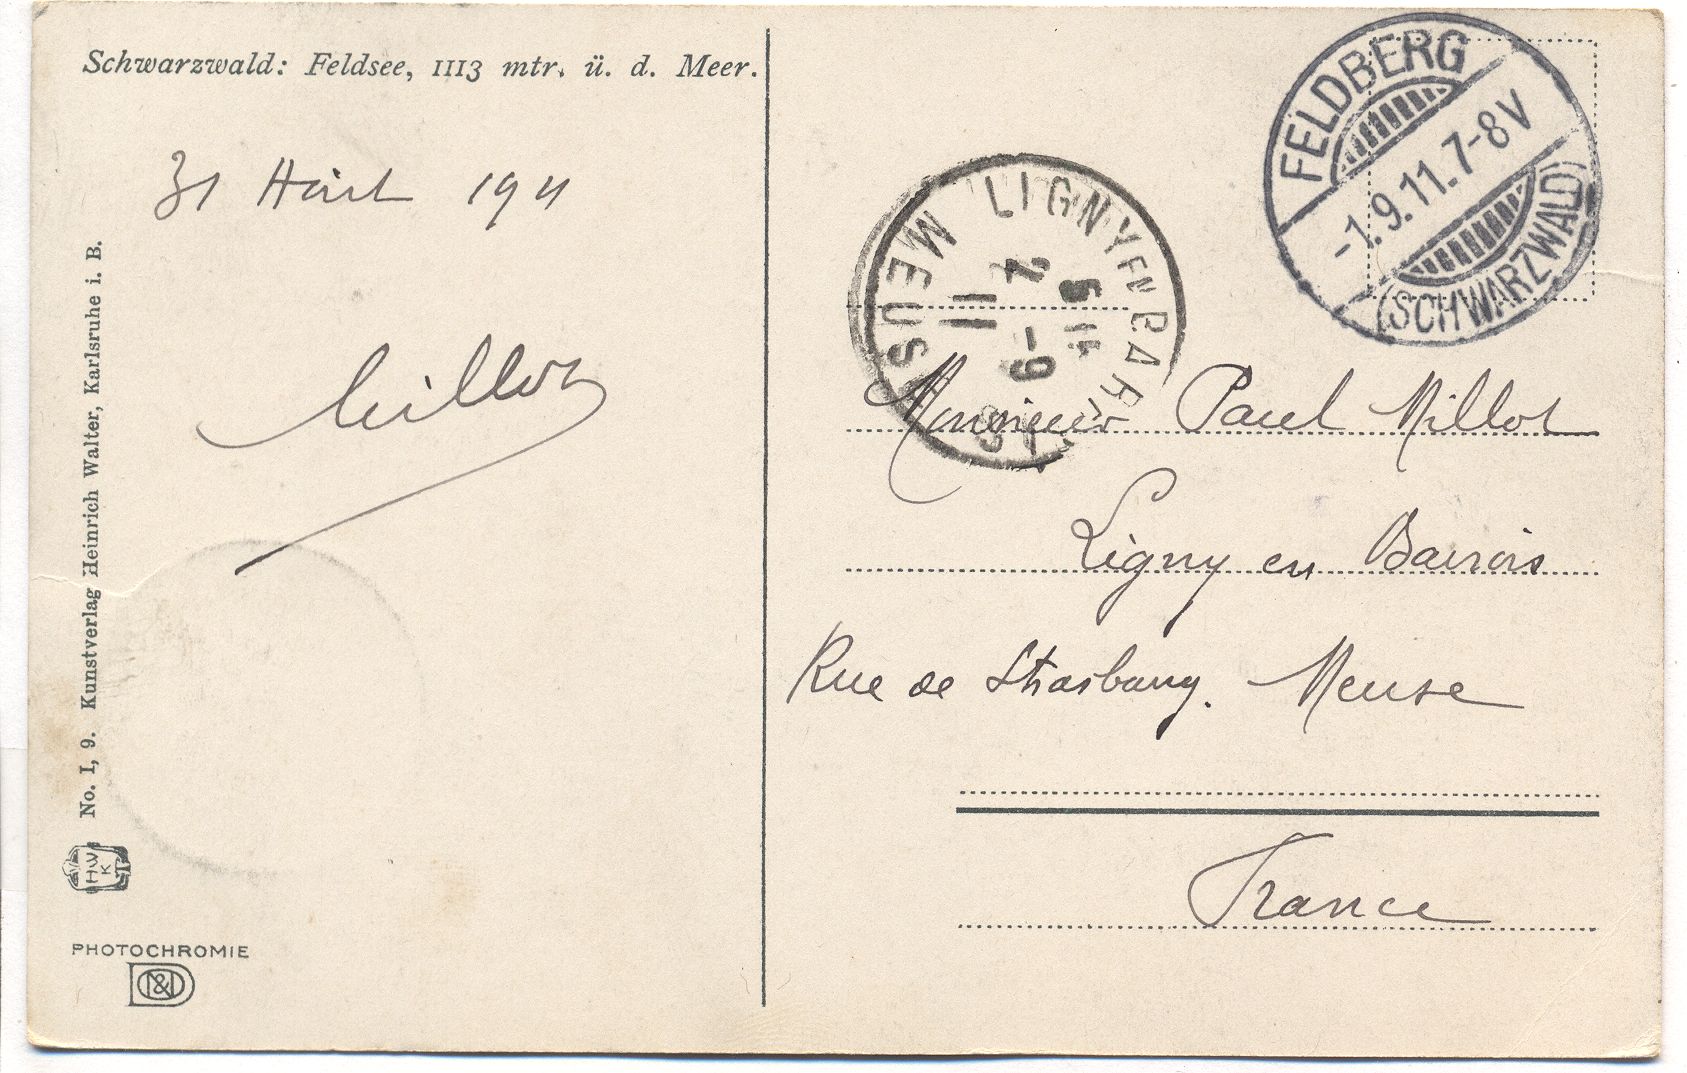 Schwarzwald: Feldsee, 1113 mtr. ü. d. Meer.
31 Août 1911
Millot
No. I, 9. Kunstverlag Heinrich Walter, Karlsruhe i. B.
HWK
PHOTOCHROMIE
D&D
FELDBERG
-1.9.11.7-8V
(SCHWARZWALD)
LIGNY EN BARROIS
2 -9
11
MEUSE
Monsieur Paul Millot
Ligny en Barrois
Rue de Strasbourg. Meuse
France